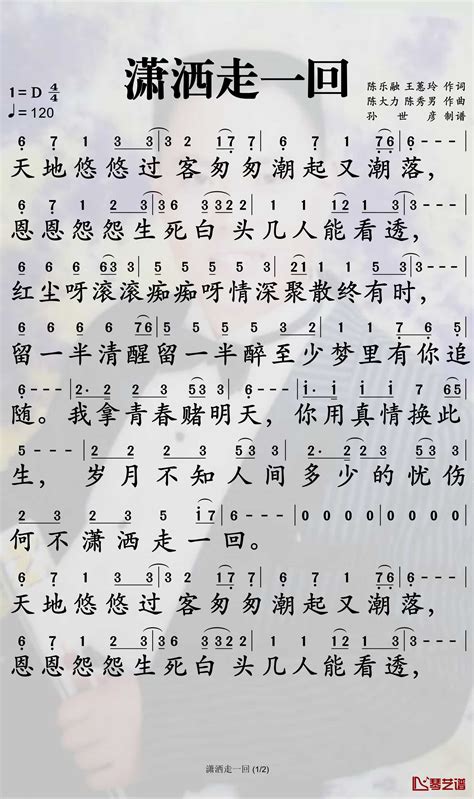 潇洒走一回
1=D 4/4
♩=120
陈乐融 王蕙玲 作词
陈大力 陈秀男 作曲
孙世彦 制谱
天地悠悠过客匆匆潮起又潮落，
恩恩怨怨生死白头几人能看透，
红尘呀滚滚痴痴呀情深聚散终有时，
留一半清醒留一半醉至少梦里有你追
随。我拿青春赌明天，你用真情换此
生，岁月不知人间多少的忧伤
何不潇洒走一回。
天地悠悠过客匆匆潮起又潮落，
恩恩怨怨生死白头几人能看透，
潇洒走一回 (1/2)
琴艺谱